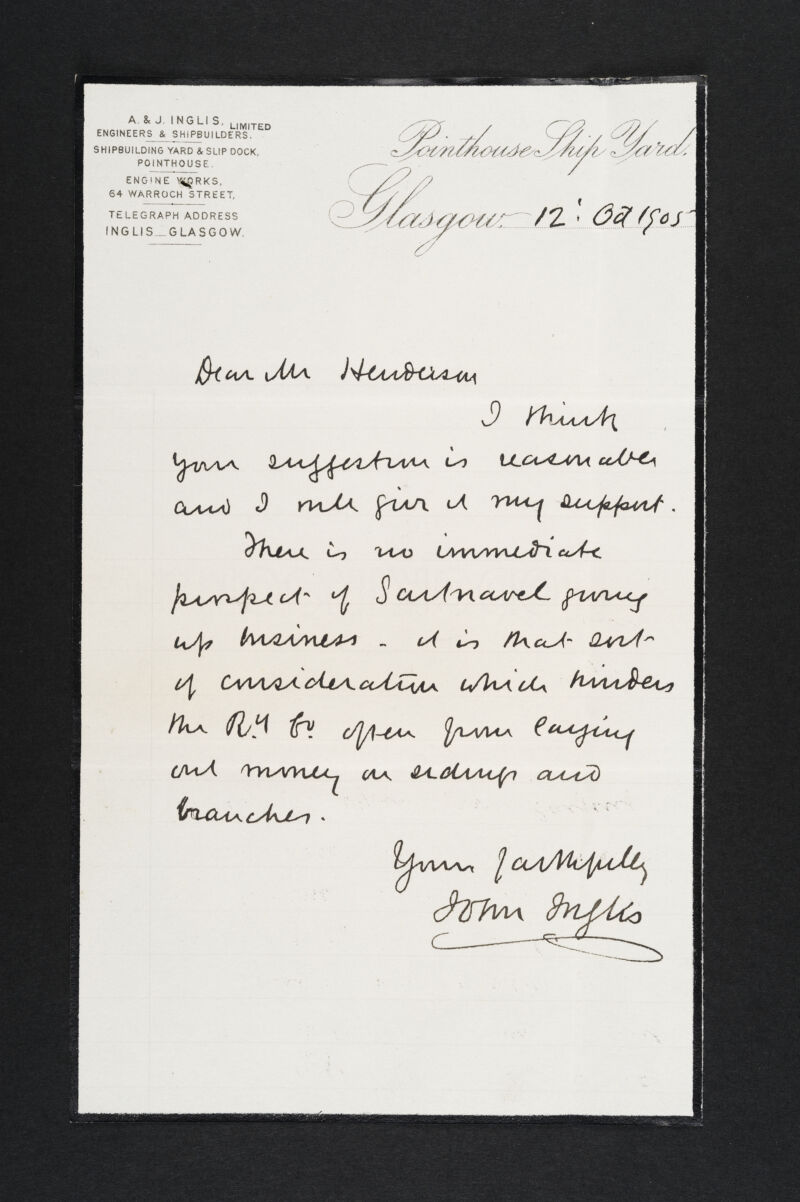 A. & J. INGLIS, LIMITED
ENGINEERS & SHIPBUILDERS.
SHIPBUILDING YARD & SLIP DOCK,
POINTHOUSE.
ENGINE WORKS,
64 WARROCH STREET,
TELEGRAPH ADDRESS
INGLIS_GLASGOW.
Pointhouse Ship Yard.
Glasgow. 12: Oct 1905
Dear Mr Henderson
I think
your suggestion is reasonable
and I will give it my support.
There is no immediate
prospect of Gartnavel giving
up business - it is that sort
of consideration which hinders
the Ry. Co. often from laying
out money on sidings and
branches.
Yours faithfully
John Inglis